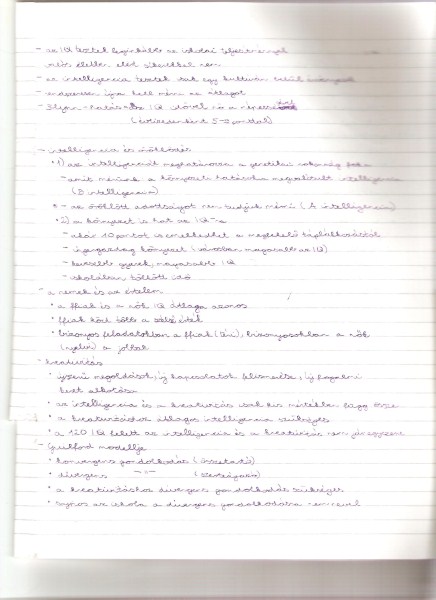 - az IQ tesztek leginkább az iskolai teljesítménnyel
valós élettel, élet sikerekkel nem
- az intelligencia tesztek csak egy kultúrán belül érvényesek
- rendszeresen újra kell mérni az átlagot
- Flynn-hatás: az IQ idővel nő a népesség
(évtizedenként 3-5 ponttal)
- intelligencia és öröklődés
• 1) az intelligenciát meghatározza a genetikai rokonság foka
- amit mérünk a környezeti hatásokra megvalósult intelligencia
(B intelligencia)
- az öröklött adottságot nem tudjuk mérni (A intelligencia)
• 2) a környezet is hat az IQ-ra
- akár 10 pontot is emelkedhet a megfelelő táplálkozástól
- ingergazdag környezet (városban magasabb az IQ)
- kevesebb gyerek, magasabb IQ
- iskolában töltött idő
- a nemek és az értelem
• a ffiak és a nők IQ átlaga azonos
• ffiak közt több a szélsőérték
• bizonyos feladatokban a ffiak (téri), bizonyosokban a nők
(nyelvi) a jobbak
- kreativitás
• újszerű megoldások, új kapcsolatok felismerése, új fogalmi
keret alkotása
• az intelligencia és a kreativitás csak kis mértékben függ össze
• a kreativitáshoz átlagos intelligencia szükséges
• a 120 IQ felett az intelligencia és a kreativitás nem jár egyszerre
- Guilford modellje
• konvergens gondolkodás (összetartó)
• divergens -"- (széttartó)
• a kreativitáshoz divergens gondolkodás szükséges
• sajnos az iskola a divergens gondolkodásra nem nevel